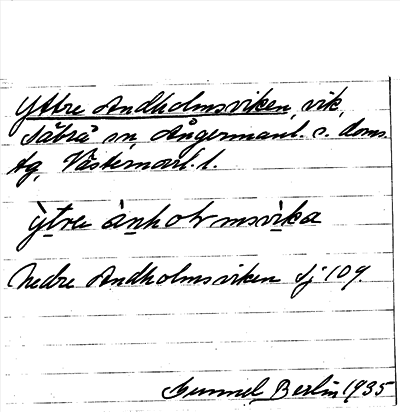 Yttre Andholmsviken, vik,
Säbrå sn, Ångermanl. s. doms.
tg, Västernorrl. l.
ỳtre ànholmsvika
Nedre Andholmsviken Sj 109.
Gunnel Berlin 1935